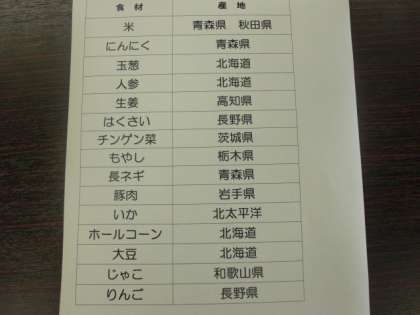 食材 産地
米 青森県 秋田県
にんにく 青森県
玉葱 北海道
人参 北海道
生姜 高知県
はくさい 長野県
チンゲン菜 茨城県
もやし 栃木県
長ネギ 青森県
豚肉 岩手県
いか 北太平洋
ホールコーン 北海道
大豆 北海道
じゃこ 和歌山県
りんご 長野県